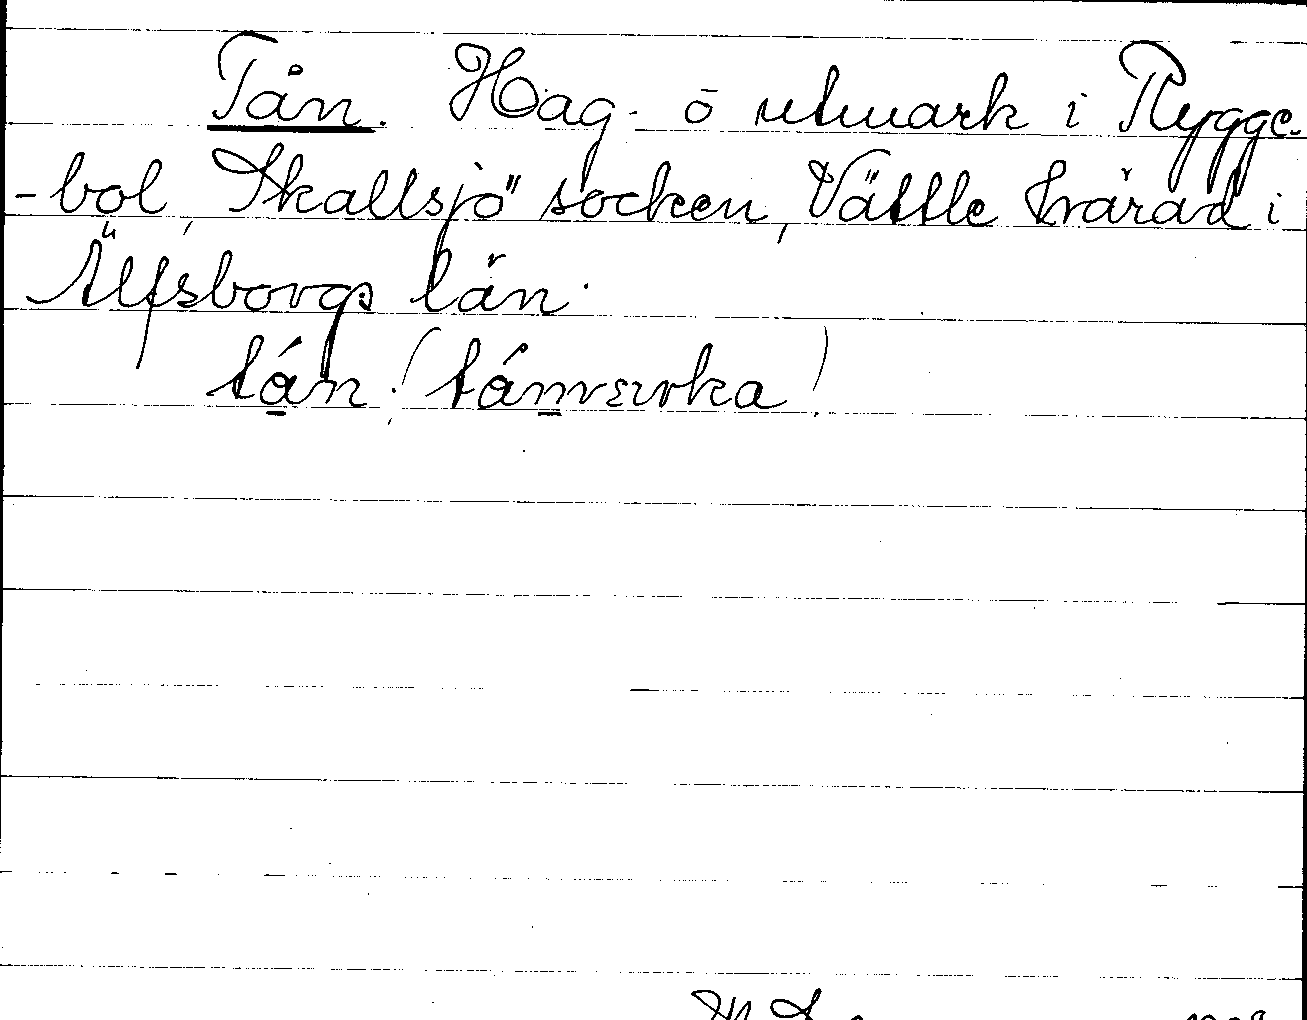 Tån. Hag- ō utmark i Rygge-
-bol, Skallsjö socken, Vättle härad i
Älfsborgs län.
tån. (tån